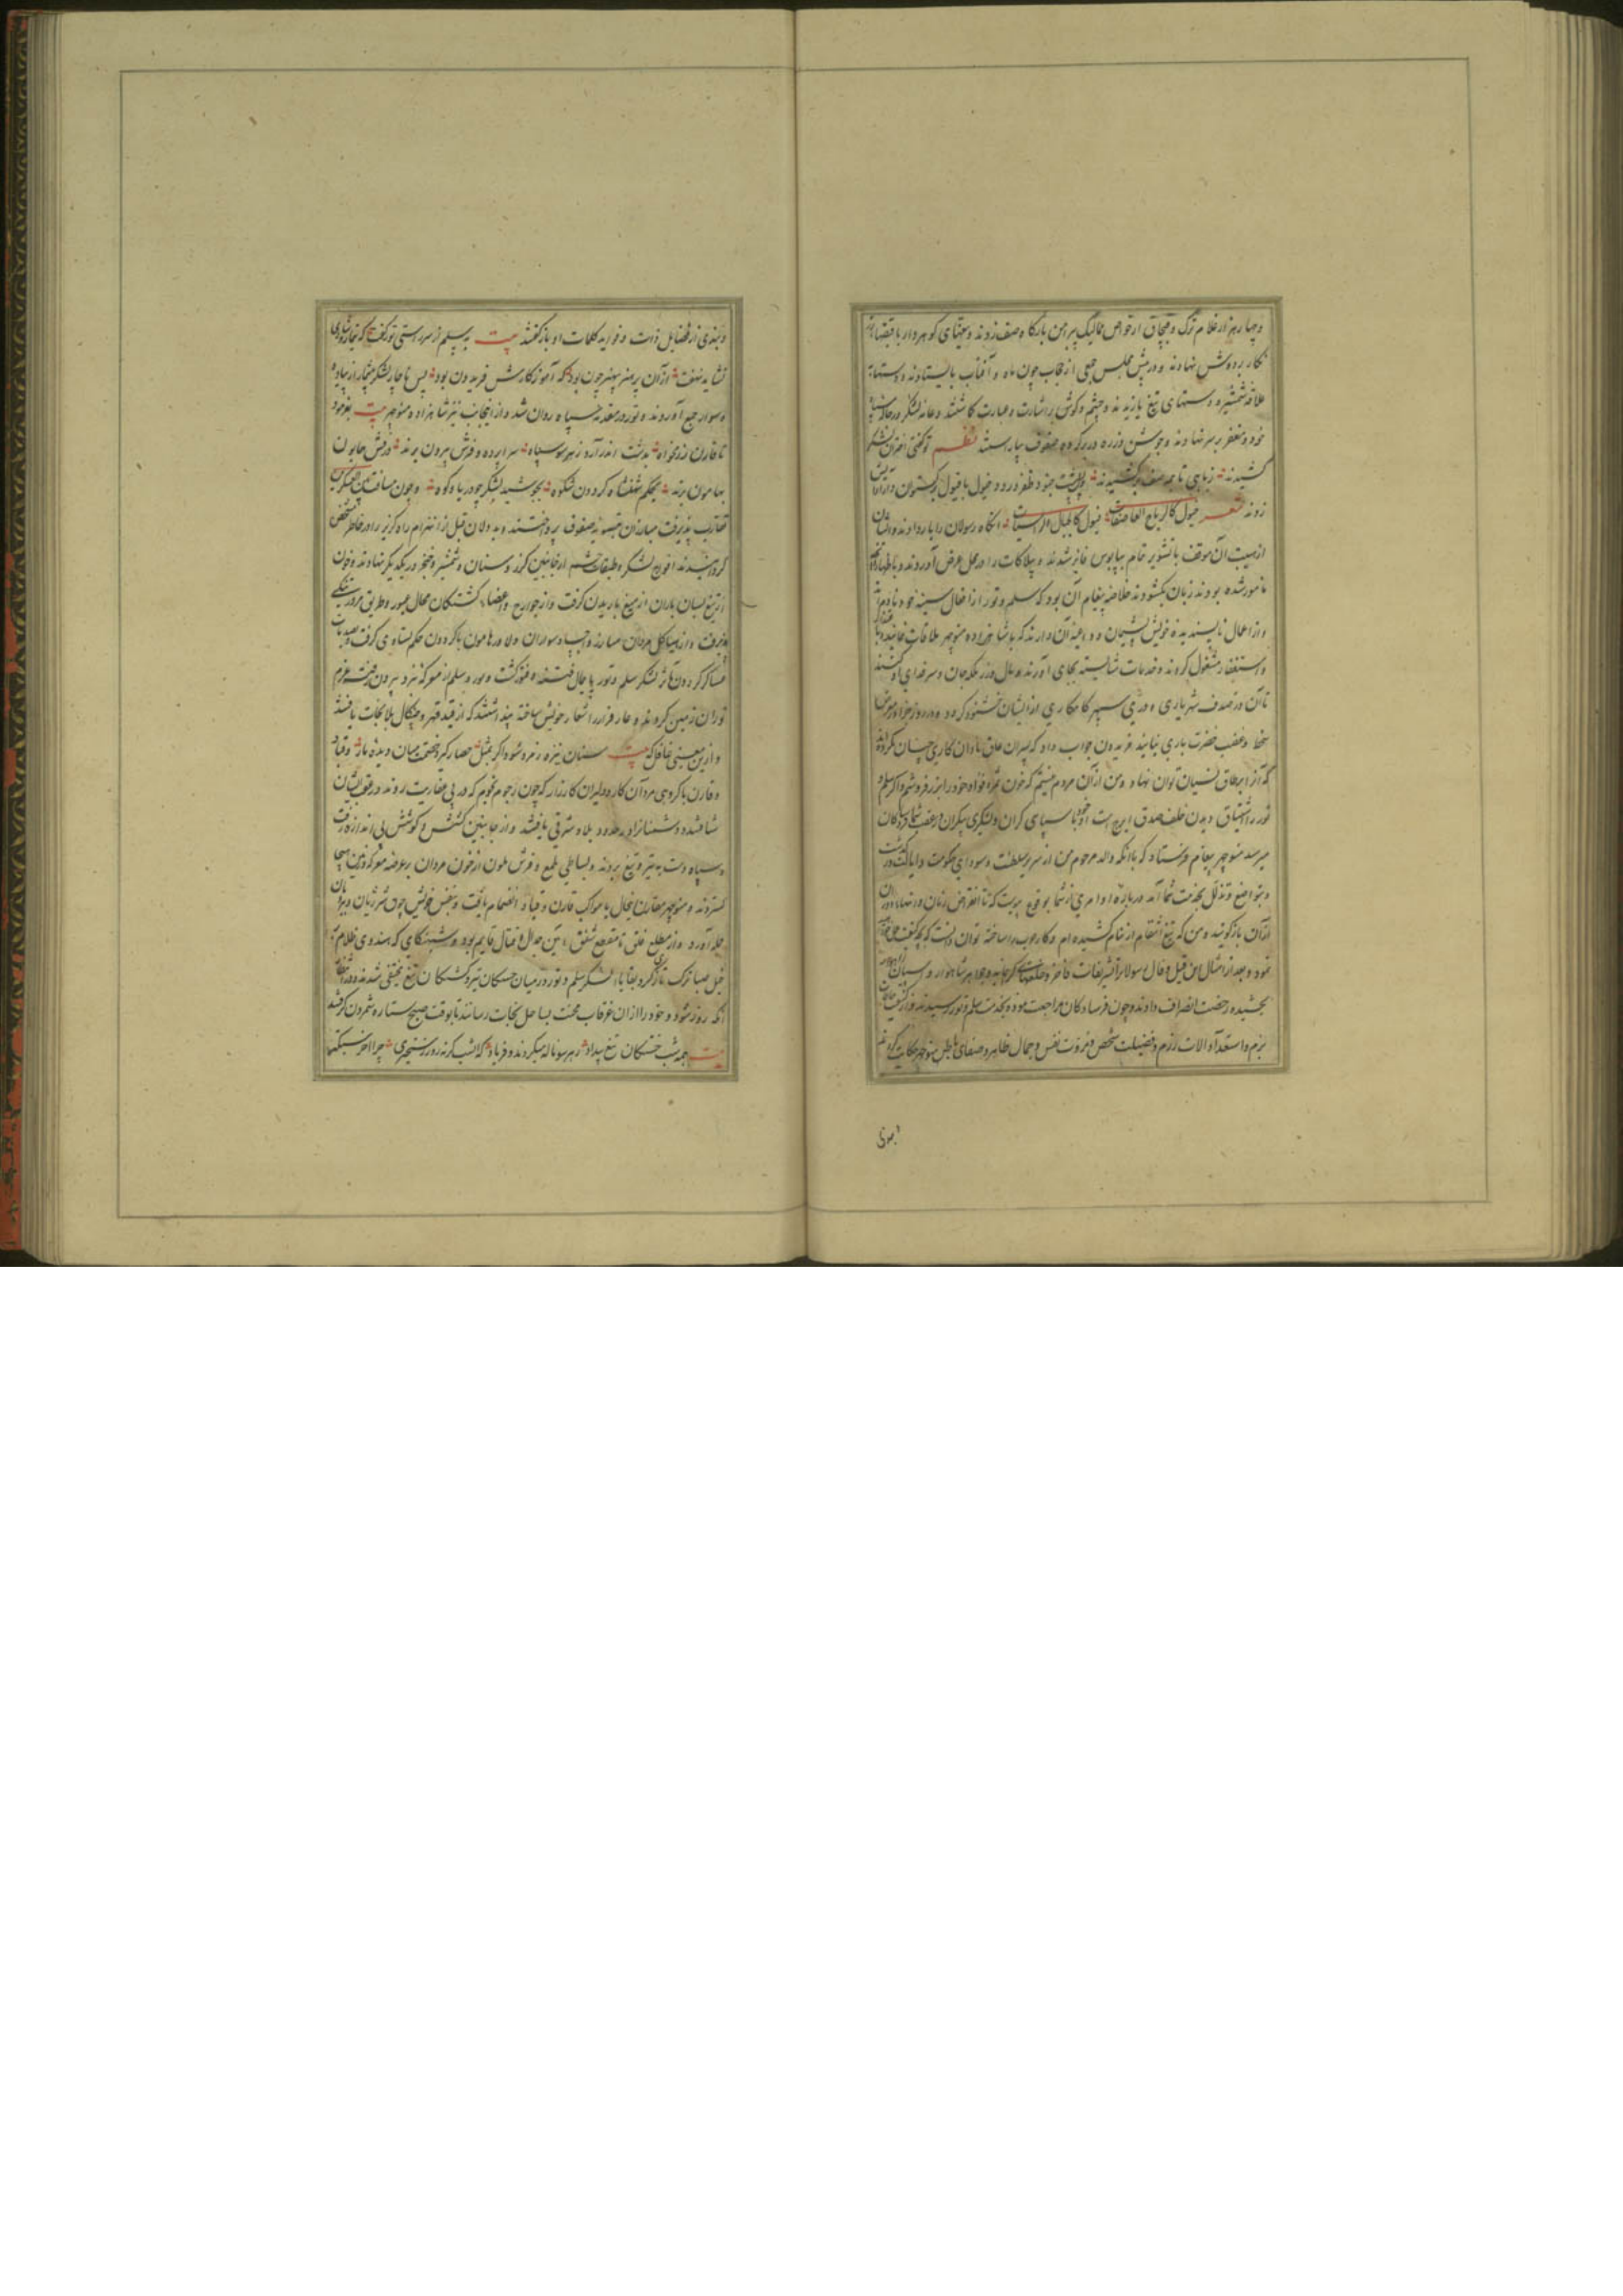 و چهار هزار غلام ترک و قبچاق از خواص ممالیک پیرامن بارگاه صف زدند و تیغهای گوهردار با قبضهاء
نگار بر دوش نهادند و در پیش مجلس جمعی از حجاب چون ماه و آفتاب بایستادند و دستها
علاقه شمشیر و دستهای تیغ یازیدند و چشم و گوش باشارت و عبارت گماشتند و عامه لشکر
خود و مغفر بر سر نهادند و جوشن و زره در بر کرده صفوف بیاراستند نظم تو گفتی
کشیدند ز ماهی تا بمه صف برکشیدند جنود ظفر ورود و خیول با فیول برگستوان و
زدند شعر خیول کالریاح العاصفات فیول کالجبال الراسیات آنگاه رسولان را بار دادند و ایشان
از هیبت آن موقف با تشویر تمام بپایبوس فایز شدند و بیلاکات را در محل عرض آوردند و باظهار آنچه
مامور شده بودند زبان بگشودند خلاصه پیغام آن بود که سلم و تور از افعال سیئه خود نادم اند
و از اعمال ناپسندیده خویش پشیمان و داعیه آن دارند که با شاهزاده منوچهر ملاقات نمایند و
و استغفار مشغول گردند و خدمات شایسته بجای آورند و مال و زر بلکه جان و سر فدای او کنند
تا آن در صدف شهریاری و دری سپهر کامکاری از ایشان خشنود گردد و در روز جزا در معرض
سخط و غضب حضرت باری نیایند فریدون جواب داد که پسران عاق نادان کاری چنان نکرده اند
که آنرا بر طاق نسیان توان نهاد و من از آن مردم نیستم که خون ثمره فؤاد خود را بزر فروشم و اگر سلم و
تور را اشتیاق دیدن خلف صدق ایرج است اینک او با سپاهی گران و لشکری بیکران در عقب شما فرستادگان
میرسد منوچهر پیغام فرستاد که با آنکه والد مرحوم من از سر سلطنت و سودای حکومت و ایالت درگذشت
و بتواضع و تذلل بخدمت شما آمد درباره او امری از شما بوقوع پیوست که تا انقراض زمان در
از آن بازگویند و من که تیغ انتقام از نیام کشیده ام و کار حرب را ساخته توان دانست که چه کنم
نمود و بعد از امثال این قیل و قال رسولانرا تشریفات فاخر و خلعتهای گرانمایه و جواهر شاهوار و اسبان
بخشیده رخصت انصراف دادند و چون فرستادگان مراجعت نموده بخدمت سلم و تور رسیدند و از کیفیت
بزم و استعداد آلات رزم و فضیلت شخص و مروت نفس و جمال ظاهر و صفای باطن منوچهر حکایت کردند
و بندی از فضایل ذات و فواید کلمات او بازگفتند بیت به سلم از سر راستی تور گفت که
نشاید نهفت از آن پر هنر بی هنر چون بود که آموزگارش فریدون بود پس ناچار لشکر بیشمار از پیاده
و سوار جمع آوردند و تور در مقدمه سپاه روان شد و از اینجانب نیز شاهزاده منوچهر بیت بفرمود
تا قارن رزمخواه بدشت اندر آرد ز هر سو سپاه سراپرده و فرش بیرون برند درفش همایون
بهامون برند بحکم شهنشاه گردون شکوه بجوشید لشکر چو دریا و کوه و چون مسافت بین العسکرین
تقارب پذیرفت مبارزان بتسویه صفوف پرداختند و بددلان قبل از انهزام راه گریز را در خاطر مشخص
گردانیدند افواج لشکر و طبقات حشم از جانبین گرز و سنان و شمشیر و خنجر در یکدیگر نهادند و خون
از تیغ بسان باران از میغ باریدن گرفت و از جوارح و اعضاء کشتگان محال عبور و طریق مرور تنگی
پذیرفت و از هیاکل مردان مبارز و اجساد سواران دلاور هامون با گردون حکم تساوی گرفت و
عساکر گردون مآثر لشکر سلم و تور پایمال فتنه و فتور گشت و تور و سلم از معرکه نبرد بیرون رفته عزم
توران زمین کردند و عار فرار را شعار خویش ساخته پنداشتند که از قید قهر و چنگال بلا نجات یافتند
و ازین معنی غافل که بیت سنان نیزه زمرد شود اگر بمثل حصار گیرد خصمت میان دیده مار و قباد
و قارن با گروهی مردان کار و دلیران کارزار که چون رجوم نجوم که در پی عفاریت روند در عقب ایشان
شتافتند و دشمنانرا در حدود بلاد شرقی یافتند و از جانبین کشش و کوشش بی اندازه رفت
و سپاه دست به تیر و تیغ بردند و بساطی ملمع و فرش ملون از خون مردان بر عرصه معرکه و زمین هیجا
گستردند و منوچهر مقارن اینحال با مواکب قارن و قباد انضمام یافت و بنفس خویش چون شیر ژیان و ببر بیان
حمله آورد و از مطلع فلق تا مقطع شفق آیین جدال و قتال قایم بود و شبنگاهی که هندوی ظلام
خیل صبا ترک تازی کرد بقایاء لشکر سلم و تور در میان خستگان تیر و کشتگان تیغ مختفی شدند و در انتظار
آنکه روز شود و خود را از آن غرقاب محنت بساحل نجات رسانند تا بوقت صبح ستاره شمردن گرفتند
بیت همه شب خستگان تیغ بیداد ز هر سو ناله میکردند و فریاد که امشب گرنه روز رستخیزی چرا آخر